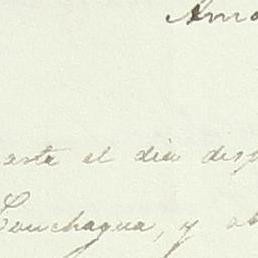 Amo
asta el dia desp
Conchagua, y al